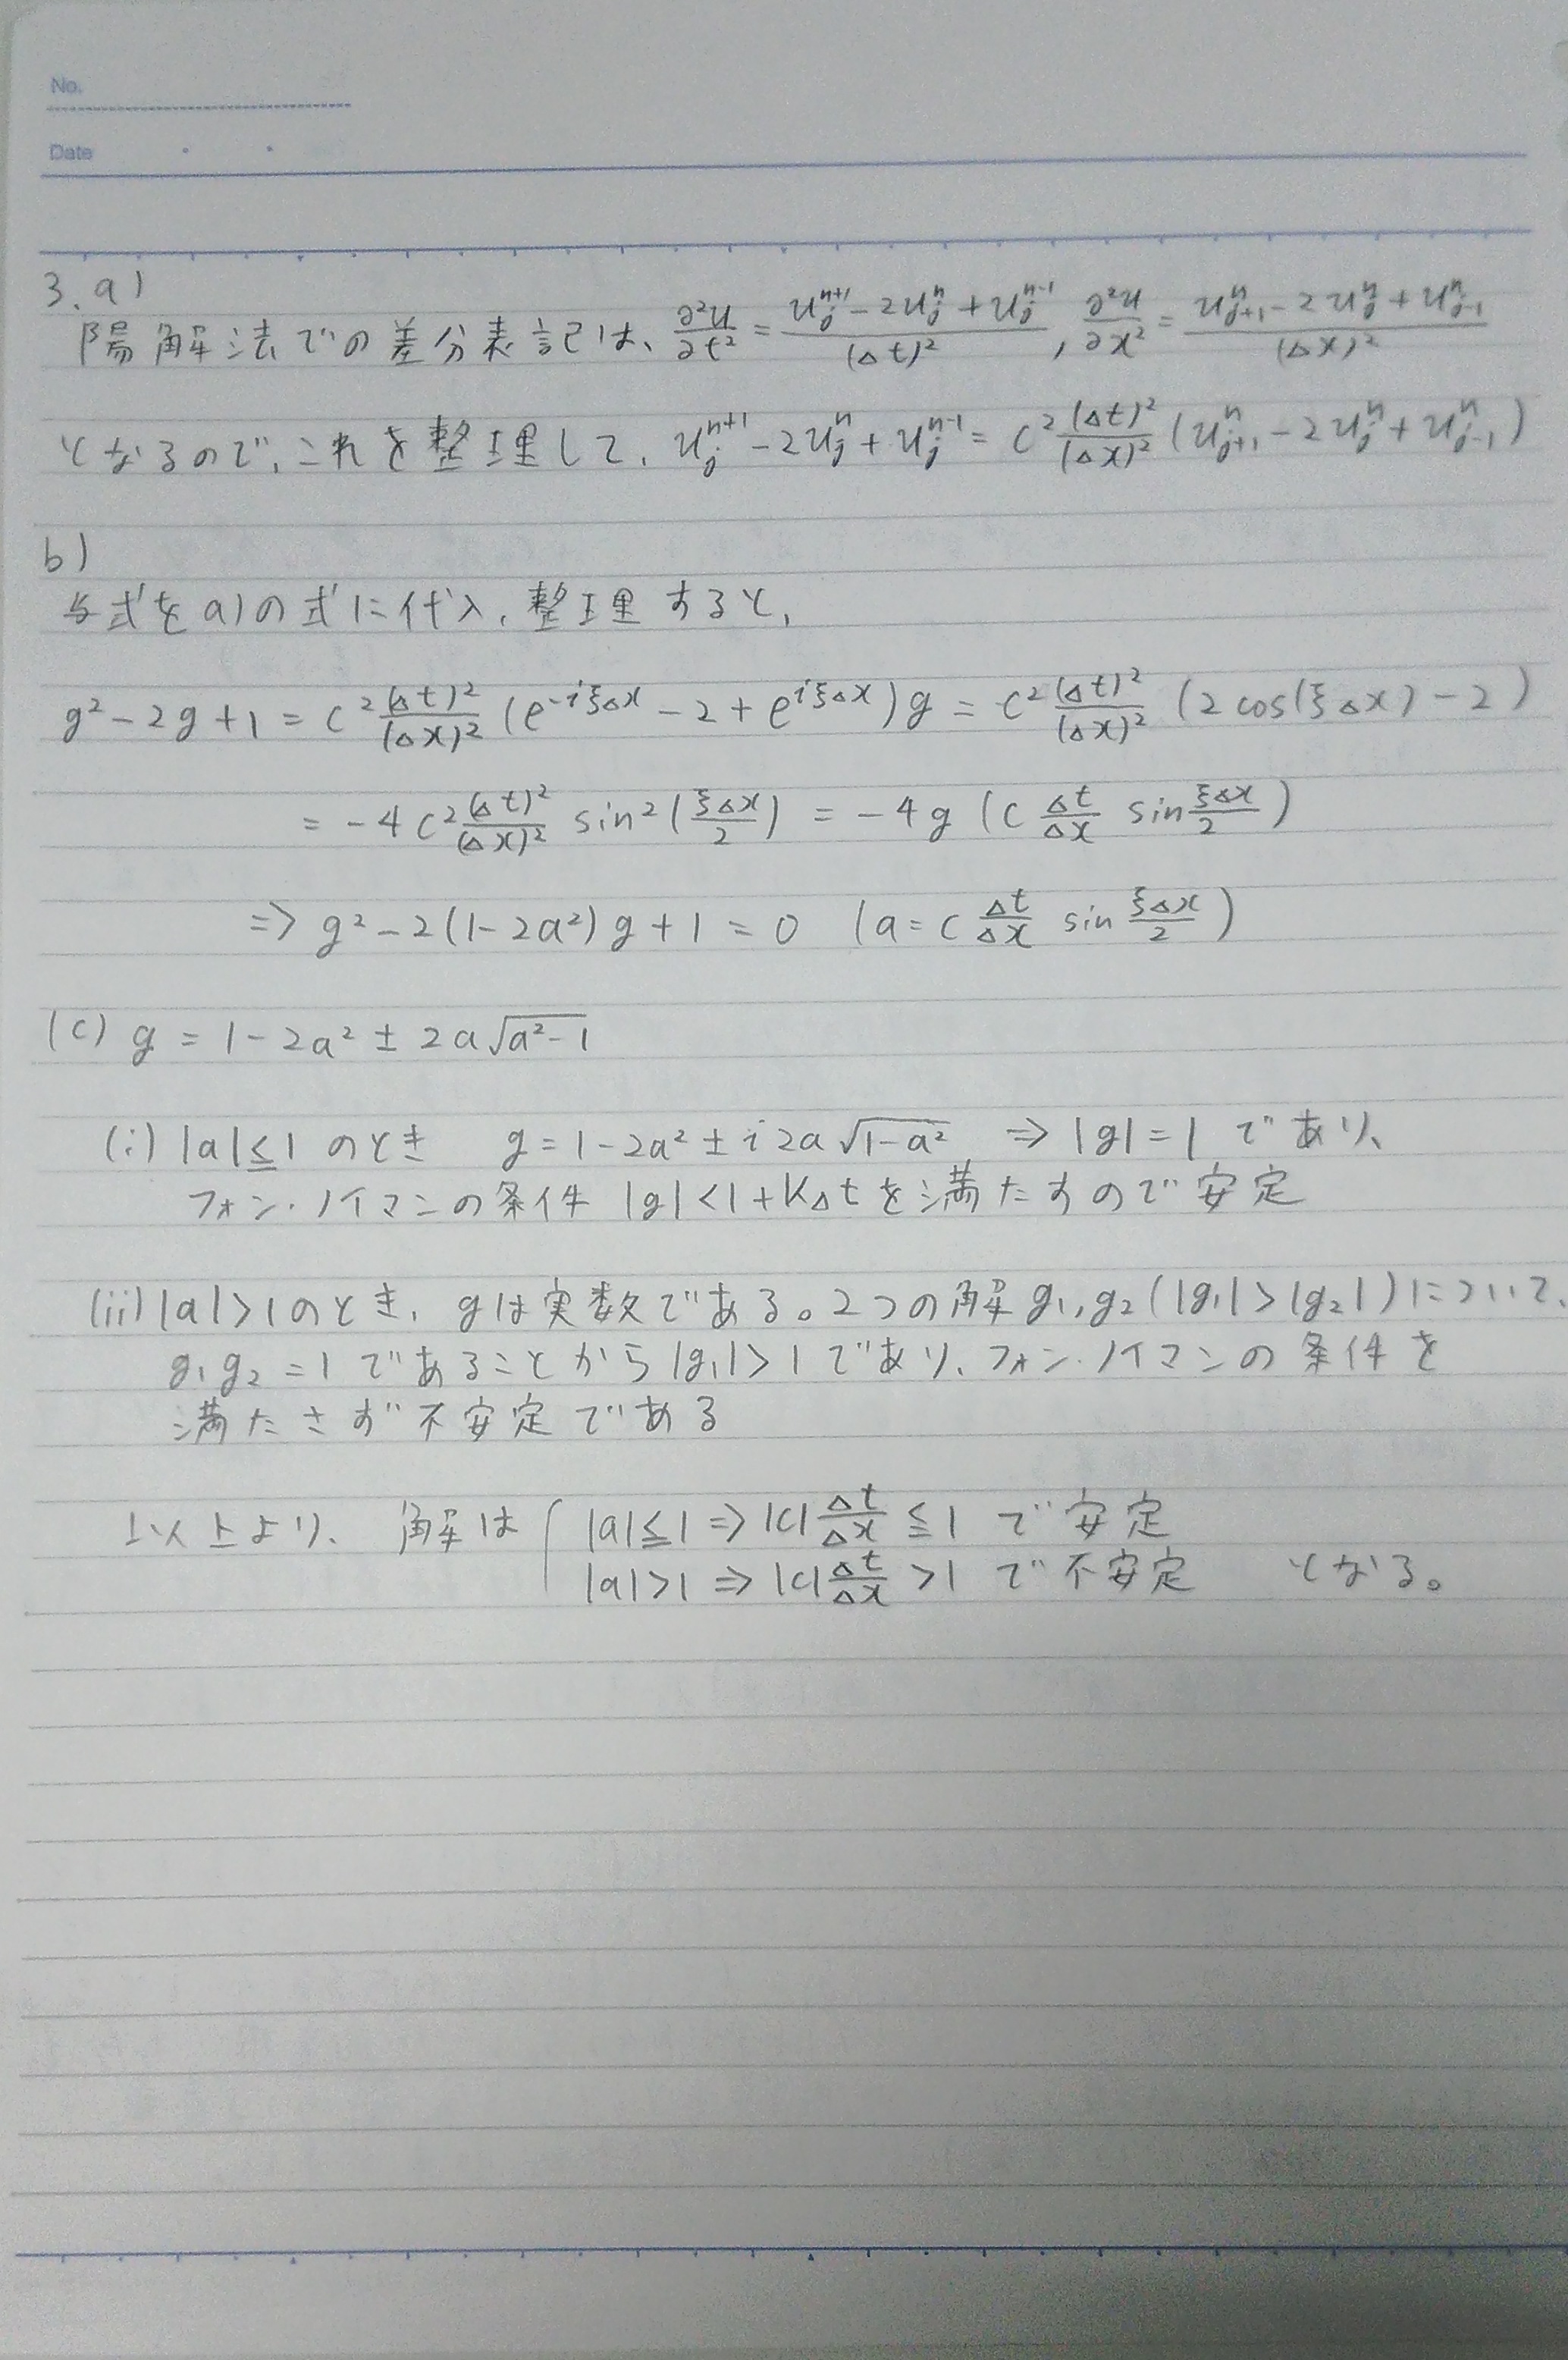 No.
Date
3. a)
陽解法での差分表記は、∂²u/∂t² = (u_j^{n+1} - 2u_j^n + u_j^{n-1})/(Δt)², ∂²u/∂x² = (u_{j+1}^n - 2u_j^n + u_{j-1}^n)/(Δx)²
となるので、これを整理して、u_j^{n+1} - 2u_j^n + u_j^{n-1} = c² (Δt)²/(Δx)² (u_{j+1}^n - 2u_j^n + u_{j-1}^n)
b)
与式をa)の式に代入、整理すると、
g² - 2g + 1 = c² (Δt)²/(Δx)² (e^{-iξΔx} - 2 + e^{iξΔx})g = c² (Δt)²/(Δx)² (2cos(ξΔx) - 2)
= -4c² (Δt)²/(Δx)² sin²(ξΔx/2) = -4g (c Δt/Δx sin ξΔx/2)
⇒ g² - 2(1-2a²)g + 1 = 0 (a = c Δt/Δx sin ξΔx/2)
(c) g = 1 - 2a² ± 2a√(a²-1)
(i) |a|≦1 のとき g = 1-2a² ± i2a√(1-a²) ⇒ |g|=1 であり、
フォン・ノイマンの条件 |g|<1+KΔt を満たすので安定
(ii) |a|>1のとき、gは実数である。2つの解 g₁, g₂ (|g₁|>|g₂|)について、
g₁g₂=1 であることから |g₁|>1 であり、フォン・ノイマンの条件を
満たさず不安定である
以上より、解は { |a|≦1 ⇒ |c|Δt/Δx ≦1 で安定
|a|>1 ⇒ |c|Δt/Δx >1 で不安定 となる。